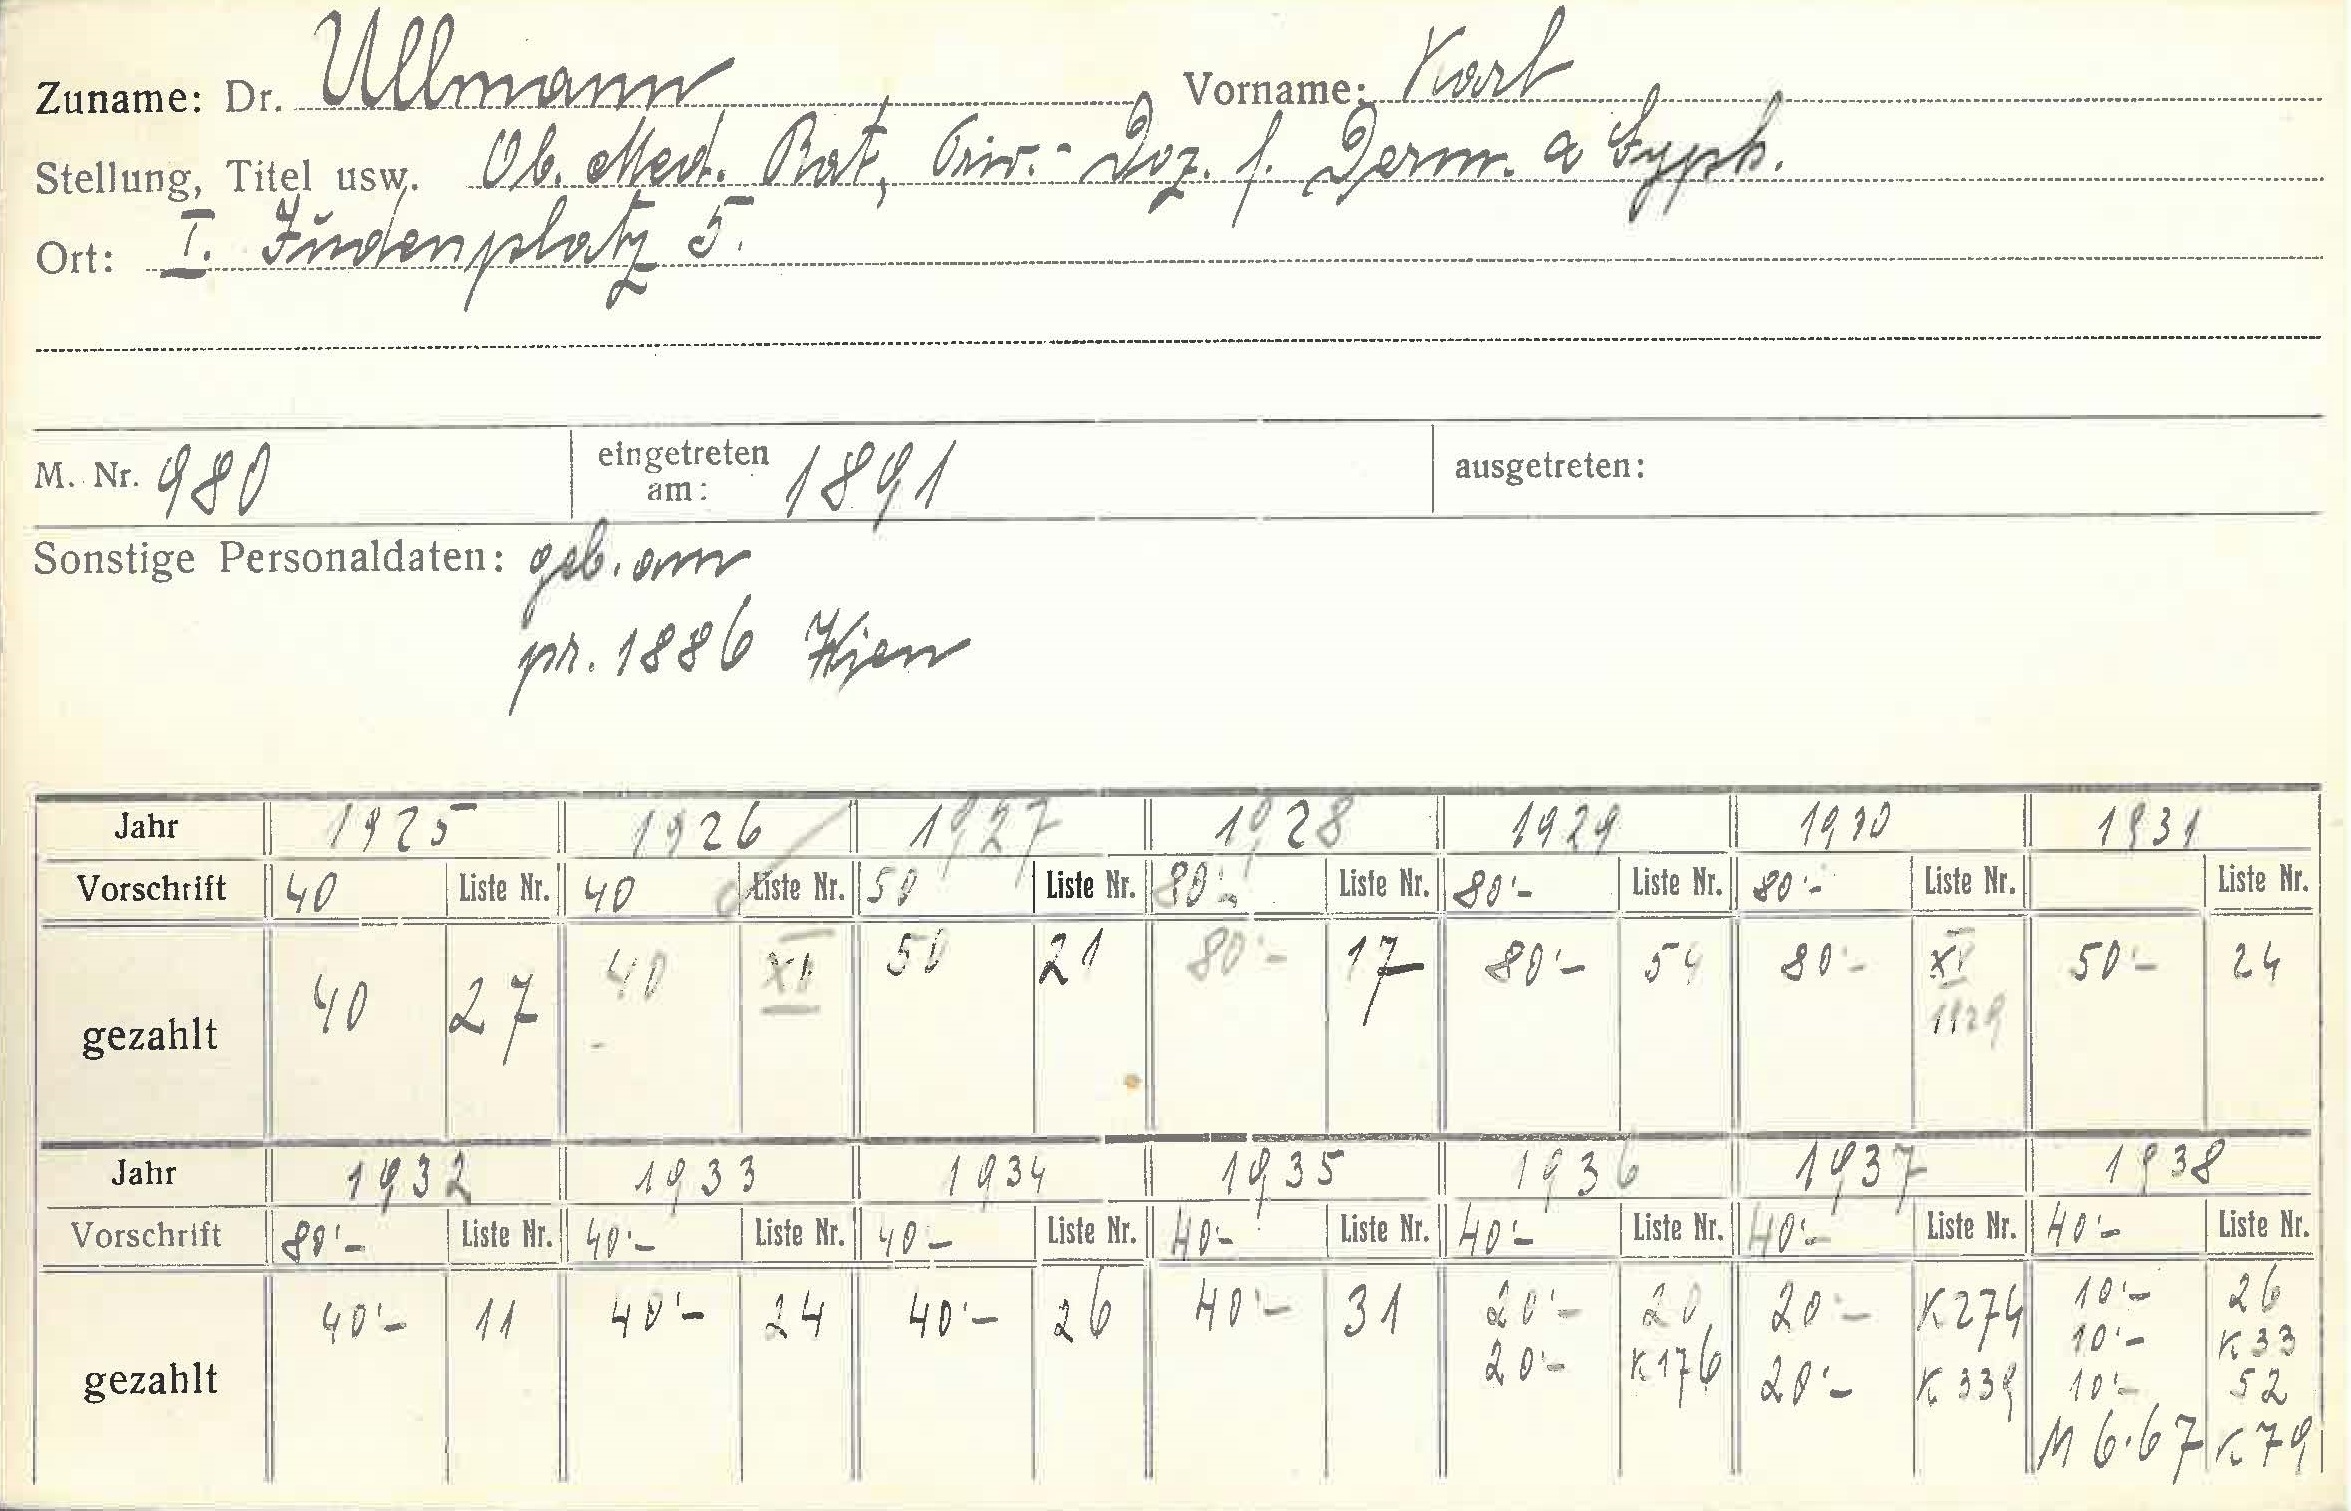 Zuname: Dr. Ullmann Vorname: Karl
Stellung, Titel usw. Ob. Med. Rat, Priv.- Doz. f. Derm. a Syph.
Ort: I. Judenplatz 5.
M. Nr. 980 eingetreten am: 1891 ausgetreten:
Sonstige Personaldaten: geb. am
pr. 1886 Wien
Jahr 1925 1926 1927 1928 1929 1930 1931
Vorschrift 40 Liste Nr. 40 Liste Nr. 50 Liste Nr. 80'- Liste Nr. 80'- Liste Nr. 80'- Liste Nr. Liste Nr.
gezahlt 40 27 40 50 21 80'- 17 80'- 54 80'- XI 50'- 24
1929
Jahr 1932 1933 1934 1935 1936 1937 1938
Vorschrift 80'- Liste Nr. 40'- Liste Nr. 40'- Liste Nr. 40'- Liste Nr. 40'- Liste Nr. 40'- Liste Nr. 40'- Liste Nr.
gezahlt 40'- 11 40'- 24 40'- 26 40'- 31 20'- 20 20'- K274 10'- 26
10'- K33
20'- K176 20'- K339 10'- 52
M 6.67 K79